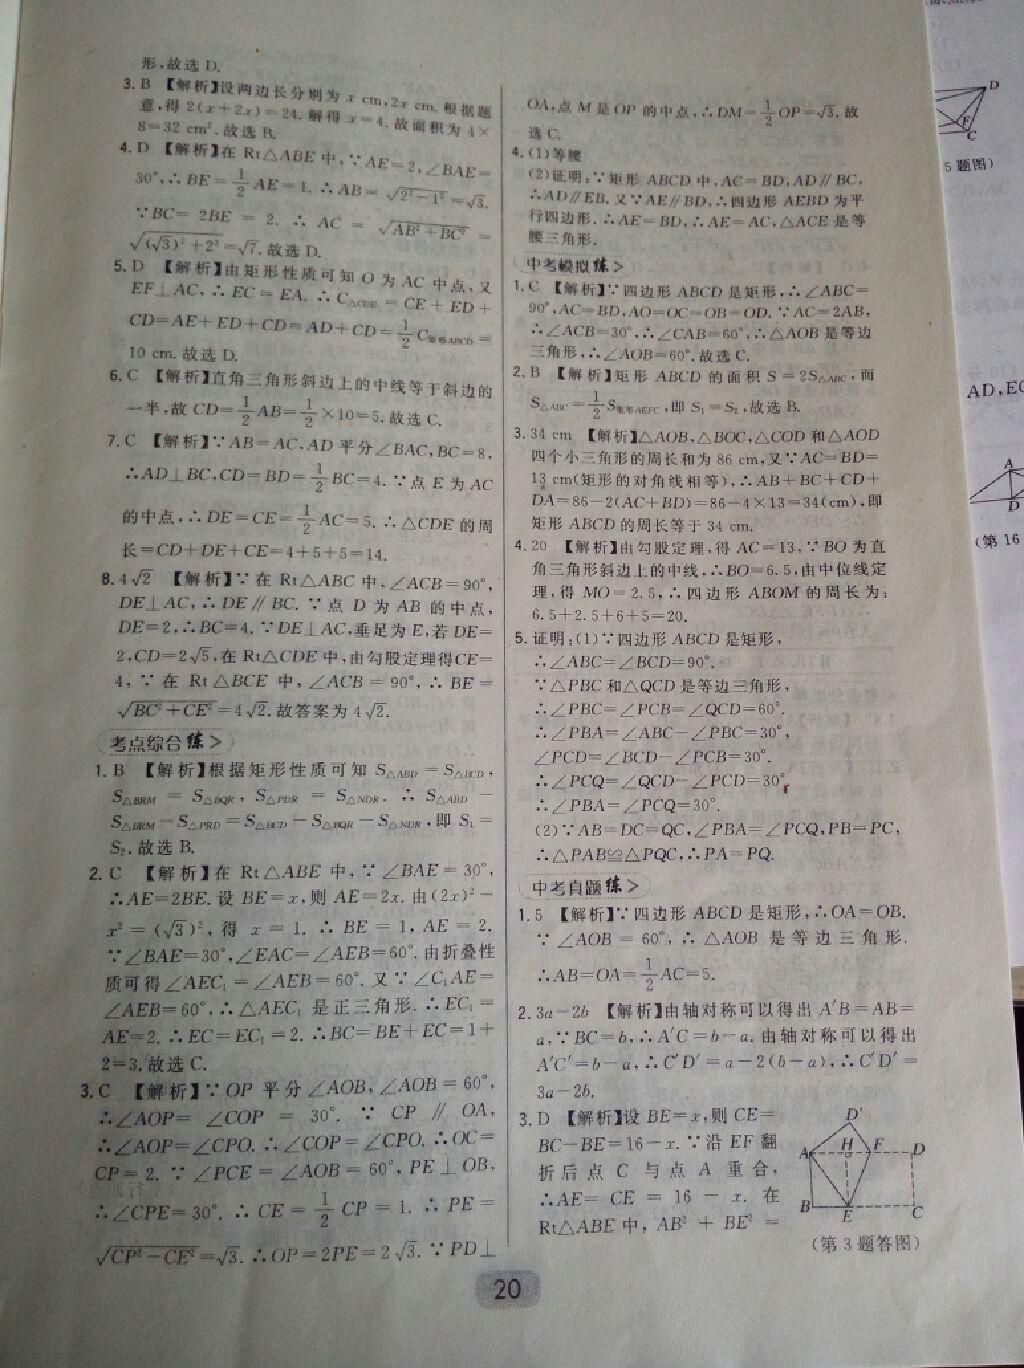 形,故选D.
3. B 【解析】设两边长分别为 x cm,2x cm. 根据题
意,得 2(x+2x)=24. 解得 x=4. 故面积为 4×
8=32 cm². 故选 B.
4. D 【解析】在 Rt△ABE 中,∵AE=2,∠BAE=
30°,∴BE=1/2AE=1. ∴AB=√(2²-1²)=√3.
∵BC=2BE=2. ∴AC=√(AB²+BC²)=
√((√3)²+2²)=√7. 故选 D.
5. D 【解析】由矩形性质可知 O 为 AC 中点,又
EF⊥AC,∴EC=EA. ∴C△CDE=CE+ED+
CD=AE+ED+CD=AD+CD=1/2C矩形ABCD=
10 cm. 故选 D.
6. C 【解析】直角三角形斜边上的中线等于斜边的
一半,故 CD=1/2AB=1/2×10=5. 故选 C.
7. C 【解析】∵AB=AC,AD 平分∠BAC,BC=8,
∴AD⊥BC,CD=BD=1/2BC=4. ∵点 E 为 AC
的中点,∴DE=CE=1/2AC=5. ∴△CDE 的周
长=CD+DE+CE=4+5+5=14.
8. 4√2 【解析】∵在 Rt△ABC 中,∠ACB=90°,
DE⊥AC,∴DE∥BC. ∵点 D 为 AB 的中点,
DE=2,∴BC=4. ∵DE⊥AC,垂足为 E,若 DE=
2,CD=2√5,在 Rt△CDE 中,由勾股定理得CE=
4,∵在 Rt△BCE 中,∠ACB=90°,∴BE=
√(BC²+CE²)=4√2. 故答案为 4√2.
考点综合练>
1. B 【解析】根据矩形性质可知 S△ABD=S△BCD,
S△BRM=S△BQR,S△PDR=S△NDR. ∴S△ABD-
S△BRM-S△PRD=S△BCD-S△BQR-S△NDR,即 S₁=
S₂. 故选 B.
2. C 【解析】在 Rt△ABE 中,∵∠BAE=30°,
∴AE=2BE. 设 BE=x,则 AE=2x. 由(2x)²-
x²=(√3)²,得 x=1. ∴BE=1,AE=2.
∵∠BAE=30°,∠EAC=∠AEB=60°. 由折叠性
质可得∠AEC₁=∠AEB=60°. 又∵∠C₁AE=
∠AEB=60°,∴△AEC₁ 是正三角形. ∴EC₁=
AE=2. ∴EC=EC₁=2. ∴BC=BE+EC=1+
2=3. 故选 C.
3. C 【解析】∵OP 平分∠AOB,∠AOB=60°,
∴∠AOP=∠COP=30°. ∵CP∥OA,
∴∠AOP=∠CPO. ∴∠COP=∠CPO. ∴OC=
CP=2. ∵∠PCE=∠AOB=60°,PE⊥OB,
∴∠CPE=30°. ∴CE=1/2CP=1. ∴PE=
√(CP²-CE²)=√3. ∴OP=2PE=2√3. ∵PD⊥
OA,点 M 是 OP 的中点,∴DM=1/2OP=√3. 故
选 C.
4. (1)等腰
(2)证明:∵矩形 ABCD 中,AC=BD,AD∥BC,
∴AD∥EB. 又∵AE∥BD,∴四边形 AEBD 为平
行四边形. ∴AE=BD,∴AE=AC,△ACE 是等
腰三角形.
中考模拟练>
1. C 【解析】∵四边形 ABCD 是矩形,∴∠ABC=
90°,AC=BD,AO=OC=OB=OD. ∵AC=2AB,
∴∠ACB=30°.∴∠CAB=60°,∴△AOB 是等边
三角形,∴∠AOB=60°. 故选 C.
2. B 【解析】矩形 ABCD 的面积 S=2S△ABC,而
S△ABC=1/2S矩形AEFC,即 S₁=S₂,故选 B.
3. 34 cm 【解析】△AOB,△BOC,△COD 和△AOD
四个小三角形的周长和为 86 cm,又∵AC=BD=
13 cm(矩形的对角线相等),∴AB+BC+CD+
DA=86-2(AC+BD)=86-4×13=34(cm),即
矩形 ABCD 的周长等于 34 cm.
4. 20 【解析】由勾股定理,得 AC=13,∵BO 为直
角三角形斜边上的中线,∴BO=6.5,由中位线定
理,得 MO=2.5,∴四边形 ABOM 的周长为:
6.5+2.5+6+5=20.
5. 证明:(1)∵四边形 ABCD 是矩形,
∴∠ABC=∠BCD=90°.
∵△PBC 和△QCD 是等边三角形,
∴∠PBC=∠PCB=∠QCD=60°.
∴∠PBA=∠ABC-∠PBC=30°,
∠PCD=∠BCD-∠PCB=30°.
∴∠PCQ=∠QCD-∠PCD=30°.
∴∠PBA=∠PCQ=30°.
(2)∵AB=DC=QC,∠PBA=∠PCQ,PB=PC,
∴△PAB≌△PQC,∴PA=PQ.
中考真题练>
1. 5 【解析】∵四边形 ABCD 是矩形,∴OA=OB.
∵∠AOB=60°,∴△AOB 是等边三角形.
∴AB=OA=1/2AC=5.
2. 3a-2b 【解析】由轴对称可以得出 A′B=AB=
a,∵BC=b,∴A′C=b-a. 由轴对称可以得出
A′C′=b-a,∴C′D′=a-2(b-a),∴C′D′=
3a-2b.
3. D 【解析】设 BE=x,则 CE=
BC-BE=16-x. ∵沿 EF 翻
折后点 C 与点 A 重合,
∴AE=CE=16-x. 在
Rt△ABE 中,AB²+BE²=
D′
A H F D
B E C
(第 3 题答图)
20
D
F
C
5题图)
AD,EC
A
D
(第 16